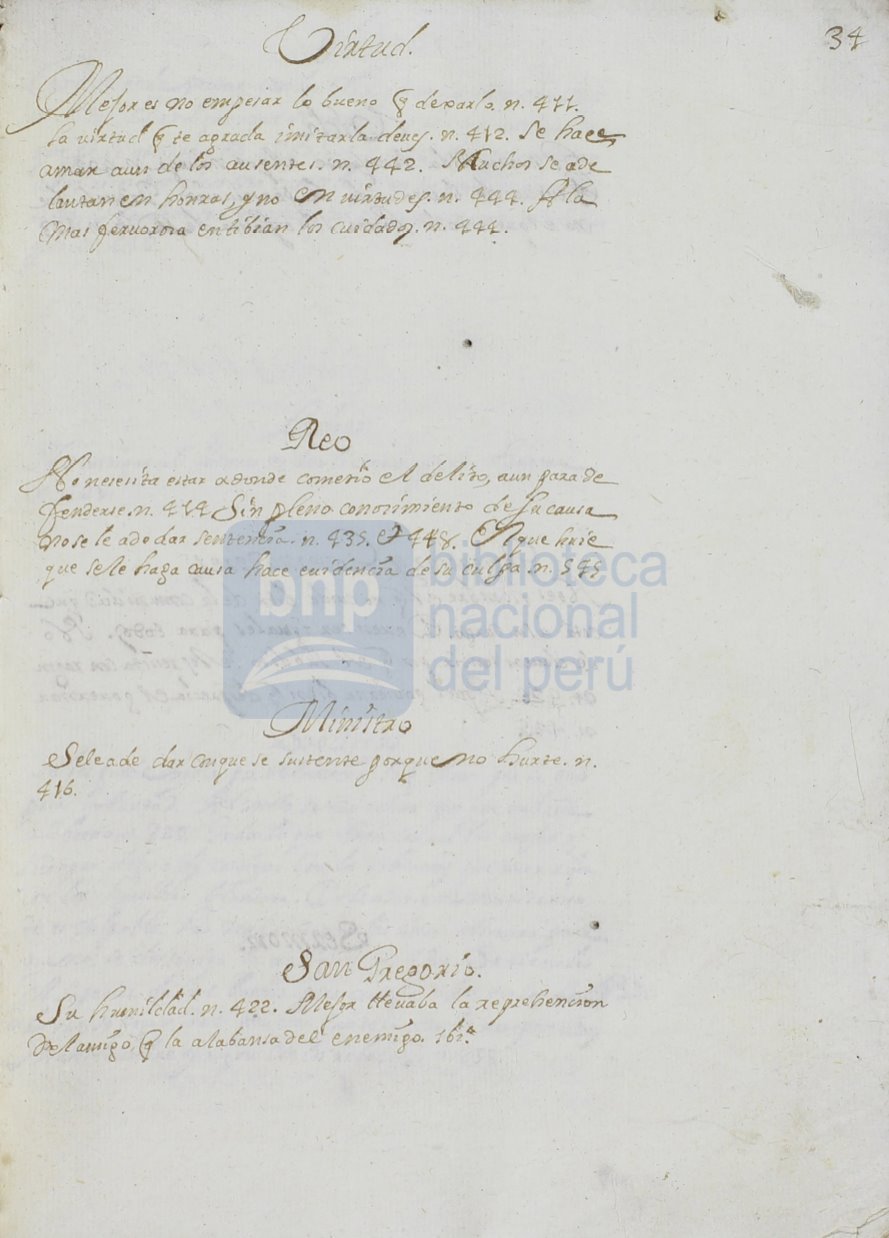 34
Virtud.
Mejor es no empesar lo bueno q̃ dexarlo. n. 411.
La virtud q̃ te agrada imitarla deves. n. 412. Se hace
amar aun de los ausentes. n. 442. Muchos se ade
lantan en honras, y no en virtudes. n. 444. A la
mas fervorosa entibian los cuidados. n. 444.
Reo
No nesesita estar adonde cometió el delito, aun para de
fenderse. n. 414 Sin pleno conosimiento de su causa
no se le a de dar sentencia. n. 435. et 448. El que huie
que se le haga causa hace evidencia de su culpa. n. 545
bnp biblioteca
nacional
del perú
Ministro
Se le a de dar con que se sustente porque no hurte. n.
416.
San Gregorio.
Su humildad. n. 422. Mejor llevaba la reprehencion
del amigo, q̃ la alabansa del enemigo. ibi.